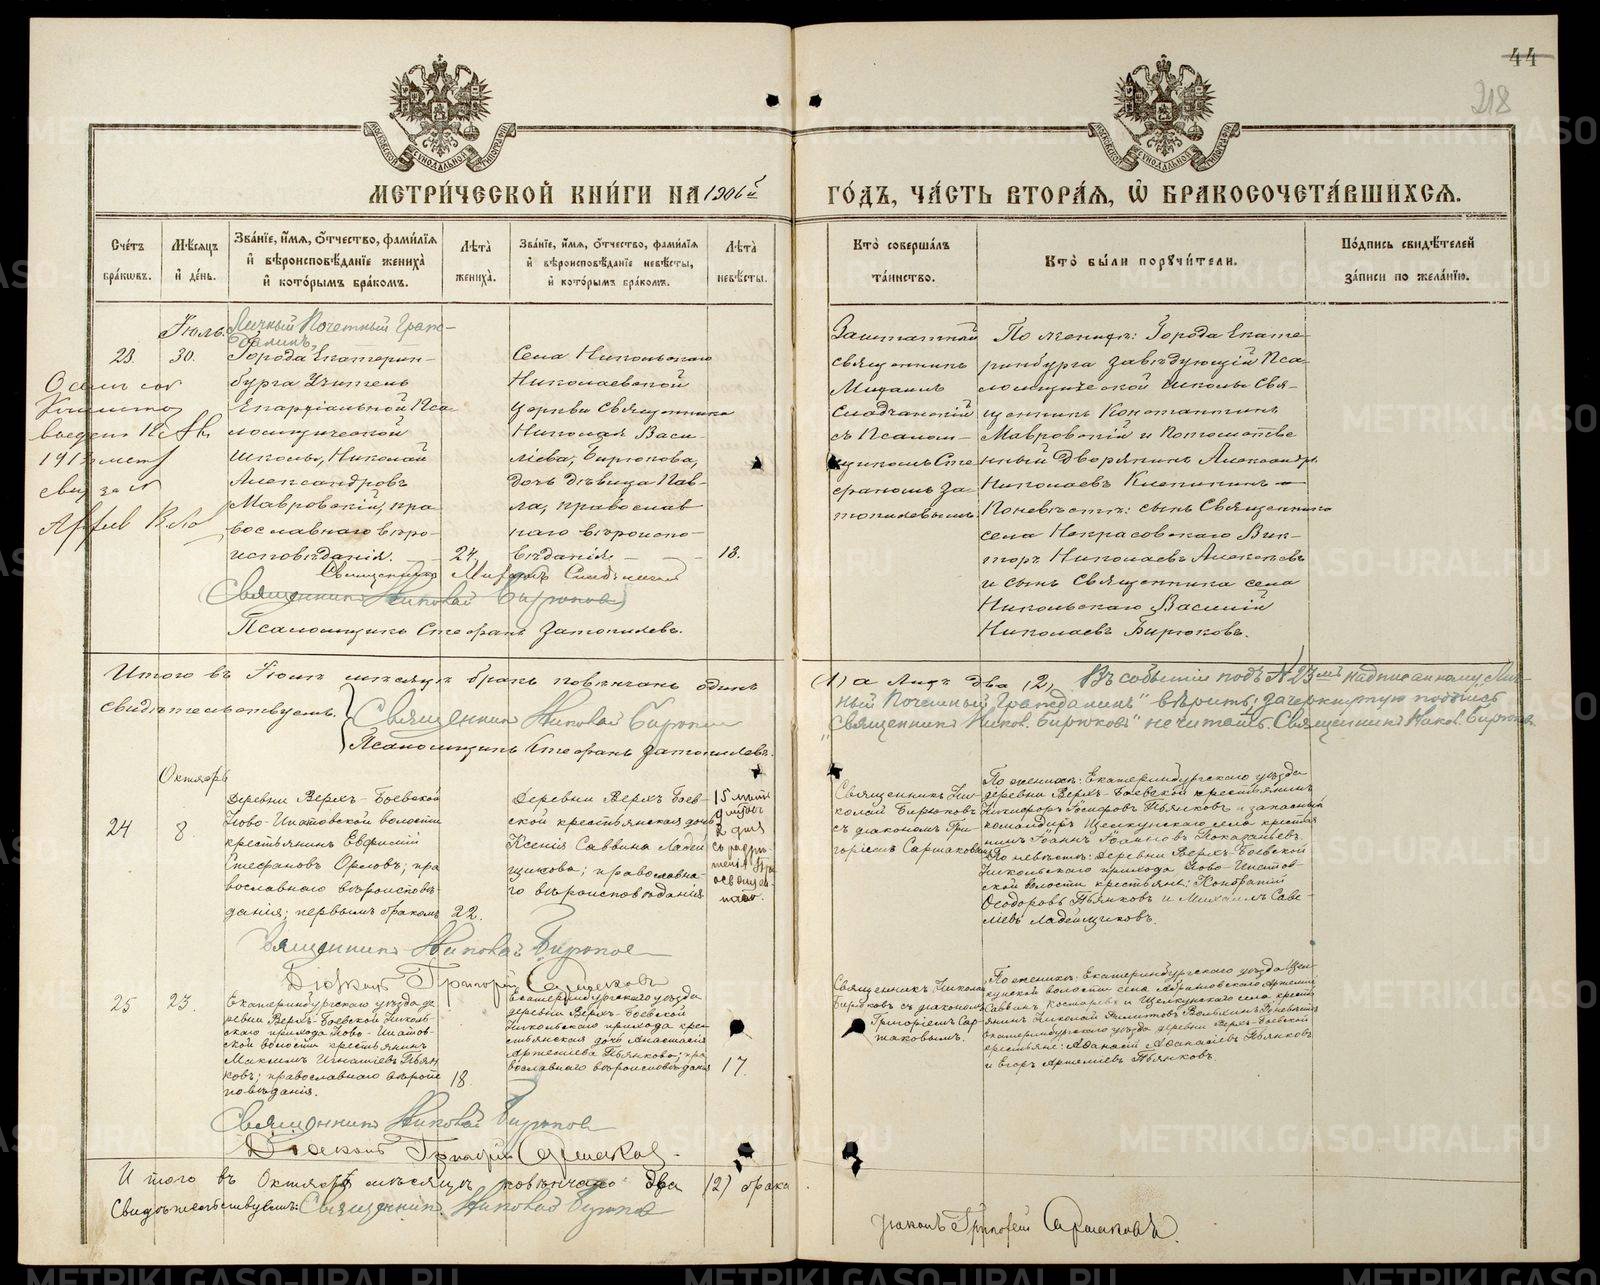 44
218
МЕТРИЧЕСКОЙ КНИГИ НА 1906й ГОДЪ, ЧАСТЬ ВТОРАЯ, Ѽ БРАКОСОЧЕТАВШИХСЯ.
Счетъ браковъ.
Мѣсяцъ и день.
Званіе, имя, отчество, фамилія и вѣроисповѣданіе жениха и которымъ бракомъ.
Лѣта жениха.
Званіе, имя, отчество, фамилія и вѣроисповѣданіе невѣсты, и которымъ бракомъ.
Лѣта невѣсты.
Кто совершалъ таинство.
Кто были поручители.
Подпись свидѣтелей записи по желанію.
23
Іюль.
30.
Личный Почетный Граж-
данинъ,
Города Екатерин-
бурга Учитель
Епархіальной Пса-
ломщической
школы, Николай
Александровъ
Мавровскій, пра-
вославнаго вѣро-
исповѣданія.
24,
Села Никольскаго
Николаевской
церкви священника
Николая Васи-
ліева, Бирюкова,
дочь дѣвица Пав-
ла, православ
наго вѣроиспо-
вѣданія
18.
Заштатный
священникъ
Михаилъ
Сладчанскій
съ Псалом-
щикомъ Сте
фаномъ За-
топляевымъ.
По женихѣ: Города Екате-
ринбурга завѣдующій Пса-
ломщической школы Свя-
щенникъ Константинъ
Мавровскій и Потомстве
нный Дворянинъ Александръ
Николаевъ Клепининъ
По невѣстѣ: сынъ Священника
села Некрасовскаго Вик-
торъ Николаевъ Алексѣевъ
и сынъ священника села
Никольскаго Василій
Николаевъ Бирюковъ.
Священникъ Михаилъ
Священникъ Николай Бирюковъ
Псаломщикъ Стефанъ Затопляевъ.
Итого въ Іюлѣ мѣсяцѣ бракъ повѣнчанъ одинъ
(1) а лицъ два (2)
свидѣтельствуемъ.
Священникъ Николай Бирюковъ
Псаломщикъ Стефанъ Затопляевъ.
Въ событіи подъ № 23мъ надписанному „Лич-
ный Почетный Гражданинъ" вѣрить; зачеркнутую подпись
„Священникъ Никол. Бирюковъ" не читать. Священникъ Никол. Бирюковъ
24
Октябрь
8.
Деревни Верхъ-Боевской
Ново-Ипатовской волости
крестьянинъ Евфимій
Стефановъ Орловъ; пра
вославнаго вѣроисповѣ-
данія; первымъ бракомъ
22.
Деревни Верхъ Боев-
ской крестьянская дочь
Ксенія Саввина Ладей
щикова; православна-
го вѣроисповѣданія
Священникъ Ник-
колай Бирюковъ
съ діакономъ Гри-
горіемъ Сармаковымъ
По женихѣ: Екатеринбургскаго уѣзда
деревни Верхъ-Боевской крестьянинъ
Никифоръ Іосифовъ Пьянковъ и запасный
По невѣстѣ: Деревни Верхъ-Боевской
Никольскаго прихода Ново-Ипатов-
ской волости крестьяне: Кондратій
Ѳеодоровъ Пьянковъ и Михаилъ Саве-
ліевъ Ладейщиковъ.
Священникъ Николай Бирюковъ
Діаконъ Григорій Сармаковъ
25
23.
Екатеринбургскаго уѣзда де
ревни Верхъ-Боевской Николь-
скаго прихода Ново-Ипатов-
ской волости крестьянинъ
Максимъ Игнатіевъ Пьян
ковъ; православнаго вѣроис
повѣданія.
18.
Екатеринбургскаго уѣзда
деревни Верхъ-Боевской
Никольскаго прихода кре-
стьянская дочь Анастасія
Артеміева Пьянкова; пра
вославнаго вѣроисповѣданія
17.
Священникъ Николай
Бирюковъ съ діакономъ
Григоріемъ Сар-
маковымъ.
По женихѣ: Екатеринбургскаго уѣзда Щел-
Екатеринбургскаго уѣзда деревни Верхъ-Боевской
крестьяне: Аѳанасій Аѳанасіевъ Пьянковъ
и Егоръ Артеміевъ Пьянковъ.
Священникъ Николай Бирюковъ
Діаконъ Григорій Сармаковъ.
Итого въ Октябрѣ мѣсяцѣ повѣнчано два (2) брака
Свидѣтельствуемъ: Священникъ Николай Бирюковъ
Діаконъ Григорій Сармаковъ.
METRIKI.GASO-URAL.RU